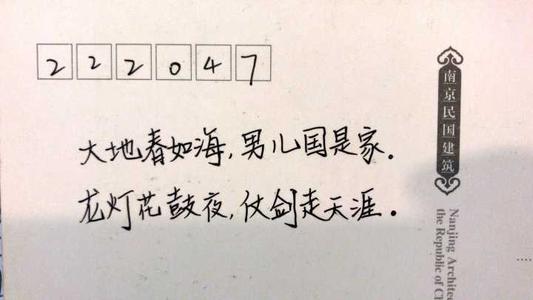 222047
大地春如海,男儿国是家.
龙灯花鼓夜,仗剑走天涯.
南京民国建筑
Nanjing Archite
the Republic of Ch